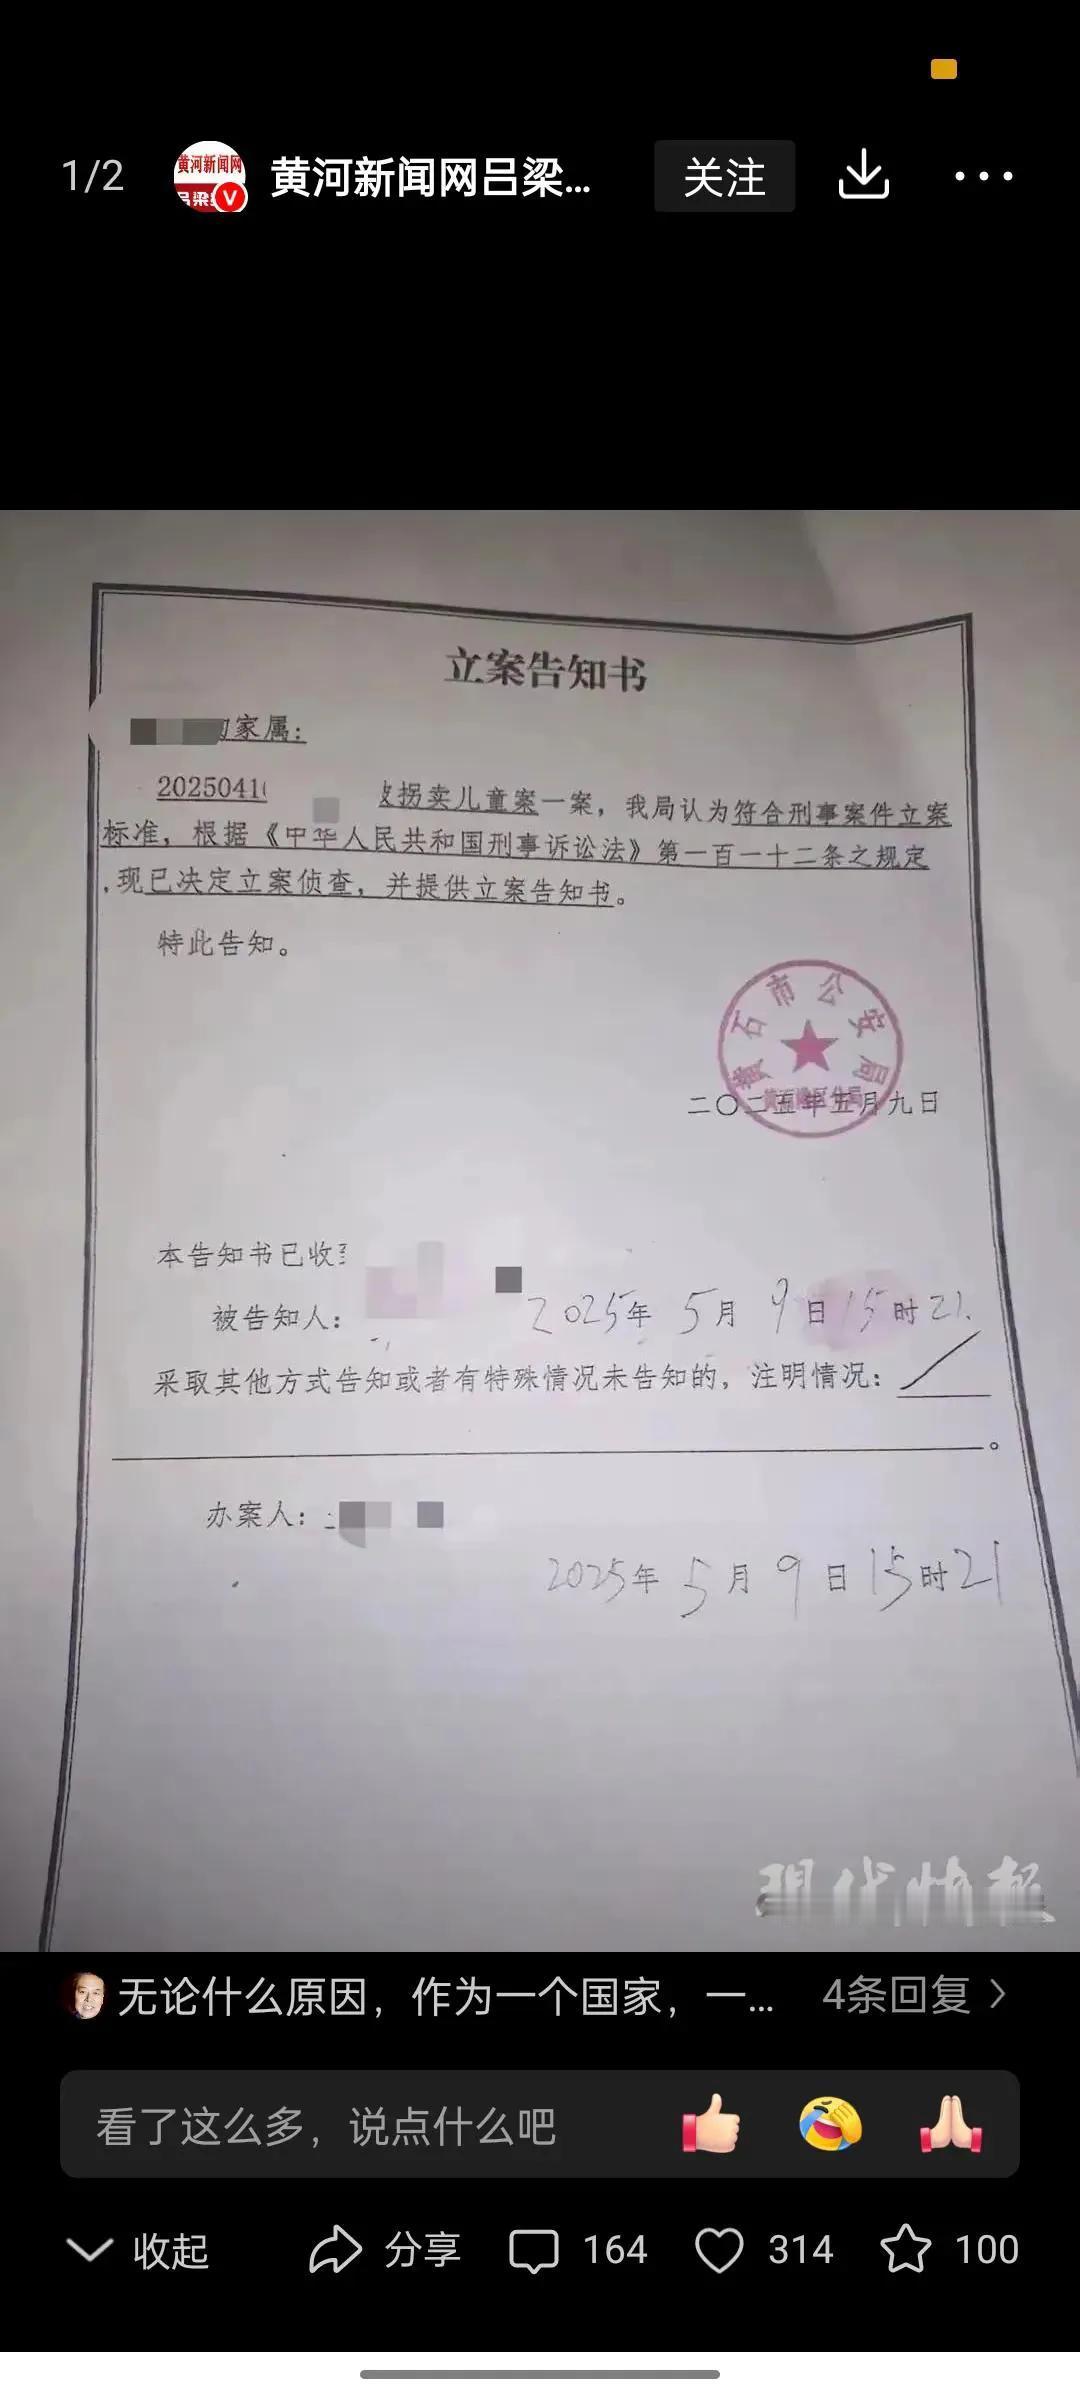 1/2
黄河新闻网
黄河新闻网吕梁...
关注
立案告知书
家属：
2025041 拐卖儿童案一案，我局认为符合刑事案件立案
标准，根据《中华人民共和国刑事诉讼法》第一百一十二条之规定
,现已决定立案侦查，并提供立案告知书。
特此告知。
黄石市公安局
二〇二五年五月九日
本告知书已收到
被告知人： 2025年 5月 9日 15时21
采取其他方式告知或者有特殊情况未告知的，注明情况：
。
办案人：
2025年 5月 9日 15时21
现代快报
无论什么原因，作为一个国家，一...
4条回复
看了这么多，说点什么吧
收起
分享
164
314
100